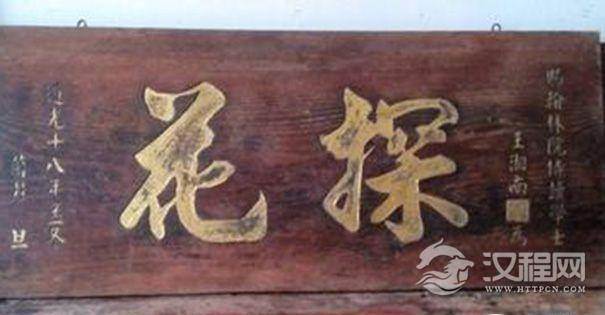 賜翰林院侍讀學士
王
為
探花
道光十八年
旦
汉程网
WWW.HTTPCN.COM